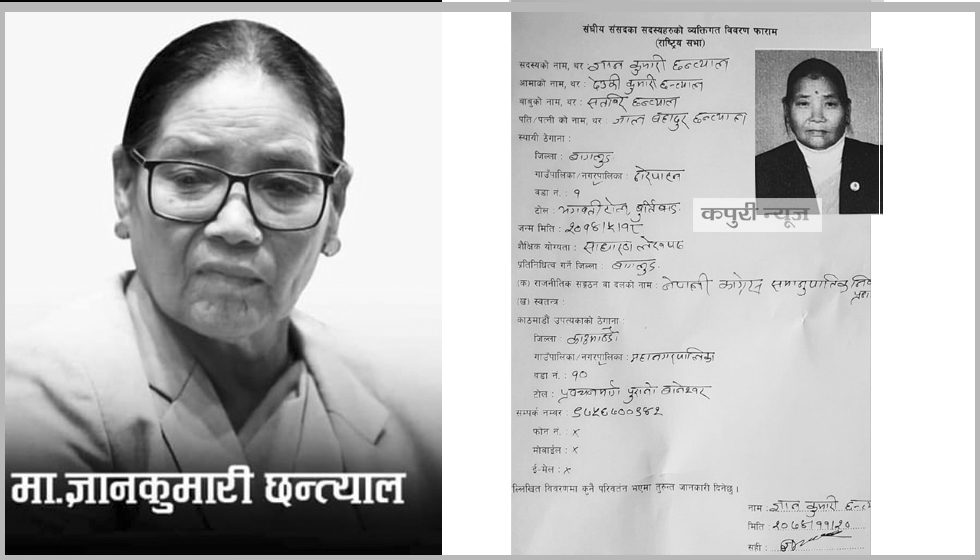 मा.ज्ञानकुमारी छन्त्याल
संघीय संसदका सदस्यहरुको व्यक्तिगत विवरण फाराम
(राष्ट्रिय सभा)
सदस्यको नाम, थर : ज्ञान कुमारी छन्त्याल
आमाको नाम, थर : देउकी कुमारी छन्त्याल
बाबुको नाम, थर : सतविर छन्त्याल
पति/पत्नी को नाम, थर : जात बहादुर छन्त्याल
स्थायी ठेगाना :
जिल्ला : बागलुङ
गाउँपालिका/नगरपालिका : ढोरपाटन
वडा नं. : १
टोल : भगवती टोल,
कपुरी न्यूज
जन्म मिति :
शैक्षिक योग्यता : साधारण लेखपढ
प्रतिनिधित्व गर्ने जिल्ला : बागलुङ
(क) राजनीतिक सङ्गठन वा दलको नाम : नेपाली काग्रेस समानुपातिक
(ख) स्वतन्त्र :
काठमाडौं उपत्यकाको ठेगाना :
जिल्ला : काठमाडौं
गाउँपालिका/नगरपालिका : महानगरपालिका
वडा नं. : १०
टोल : पुरानो बानेश्वर
सम्पर्क नम्बर :
फोन नं. : x
मोबाईल : x
ई-मेल : x
ल्लिखित विवरणमा कुनै परिवर्तन भएमा तुरुन्त जानकारी दिनेछु ।
नाम : ज्ञान कुमारी छन्त्य
मिति :
सही :